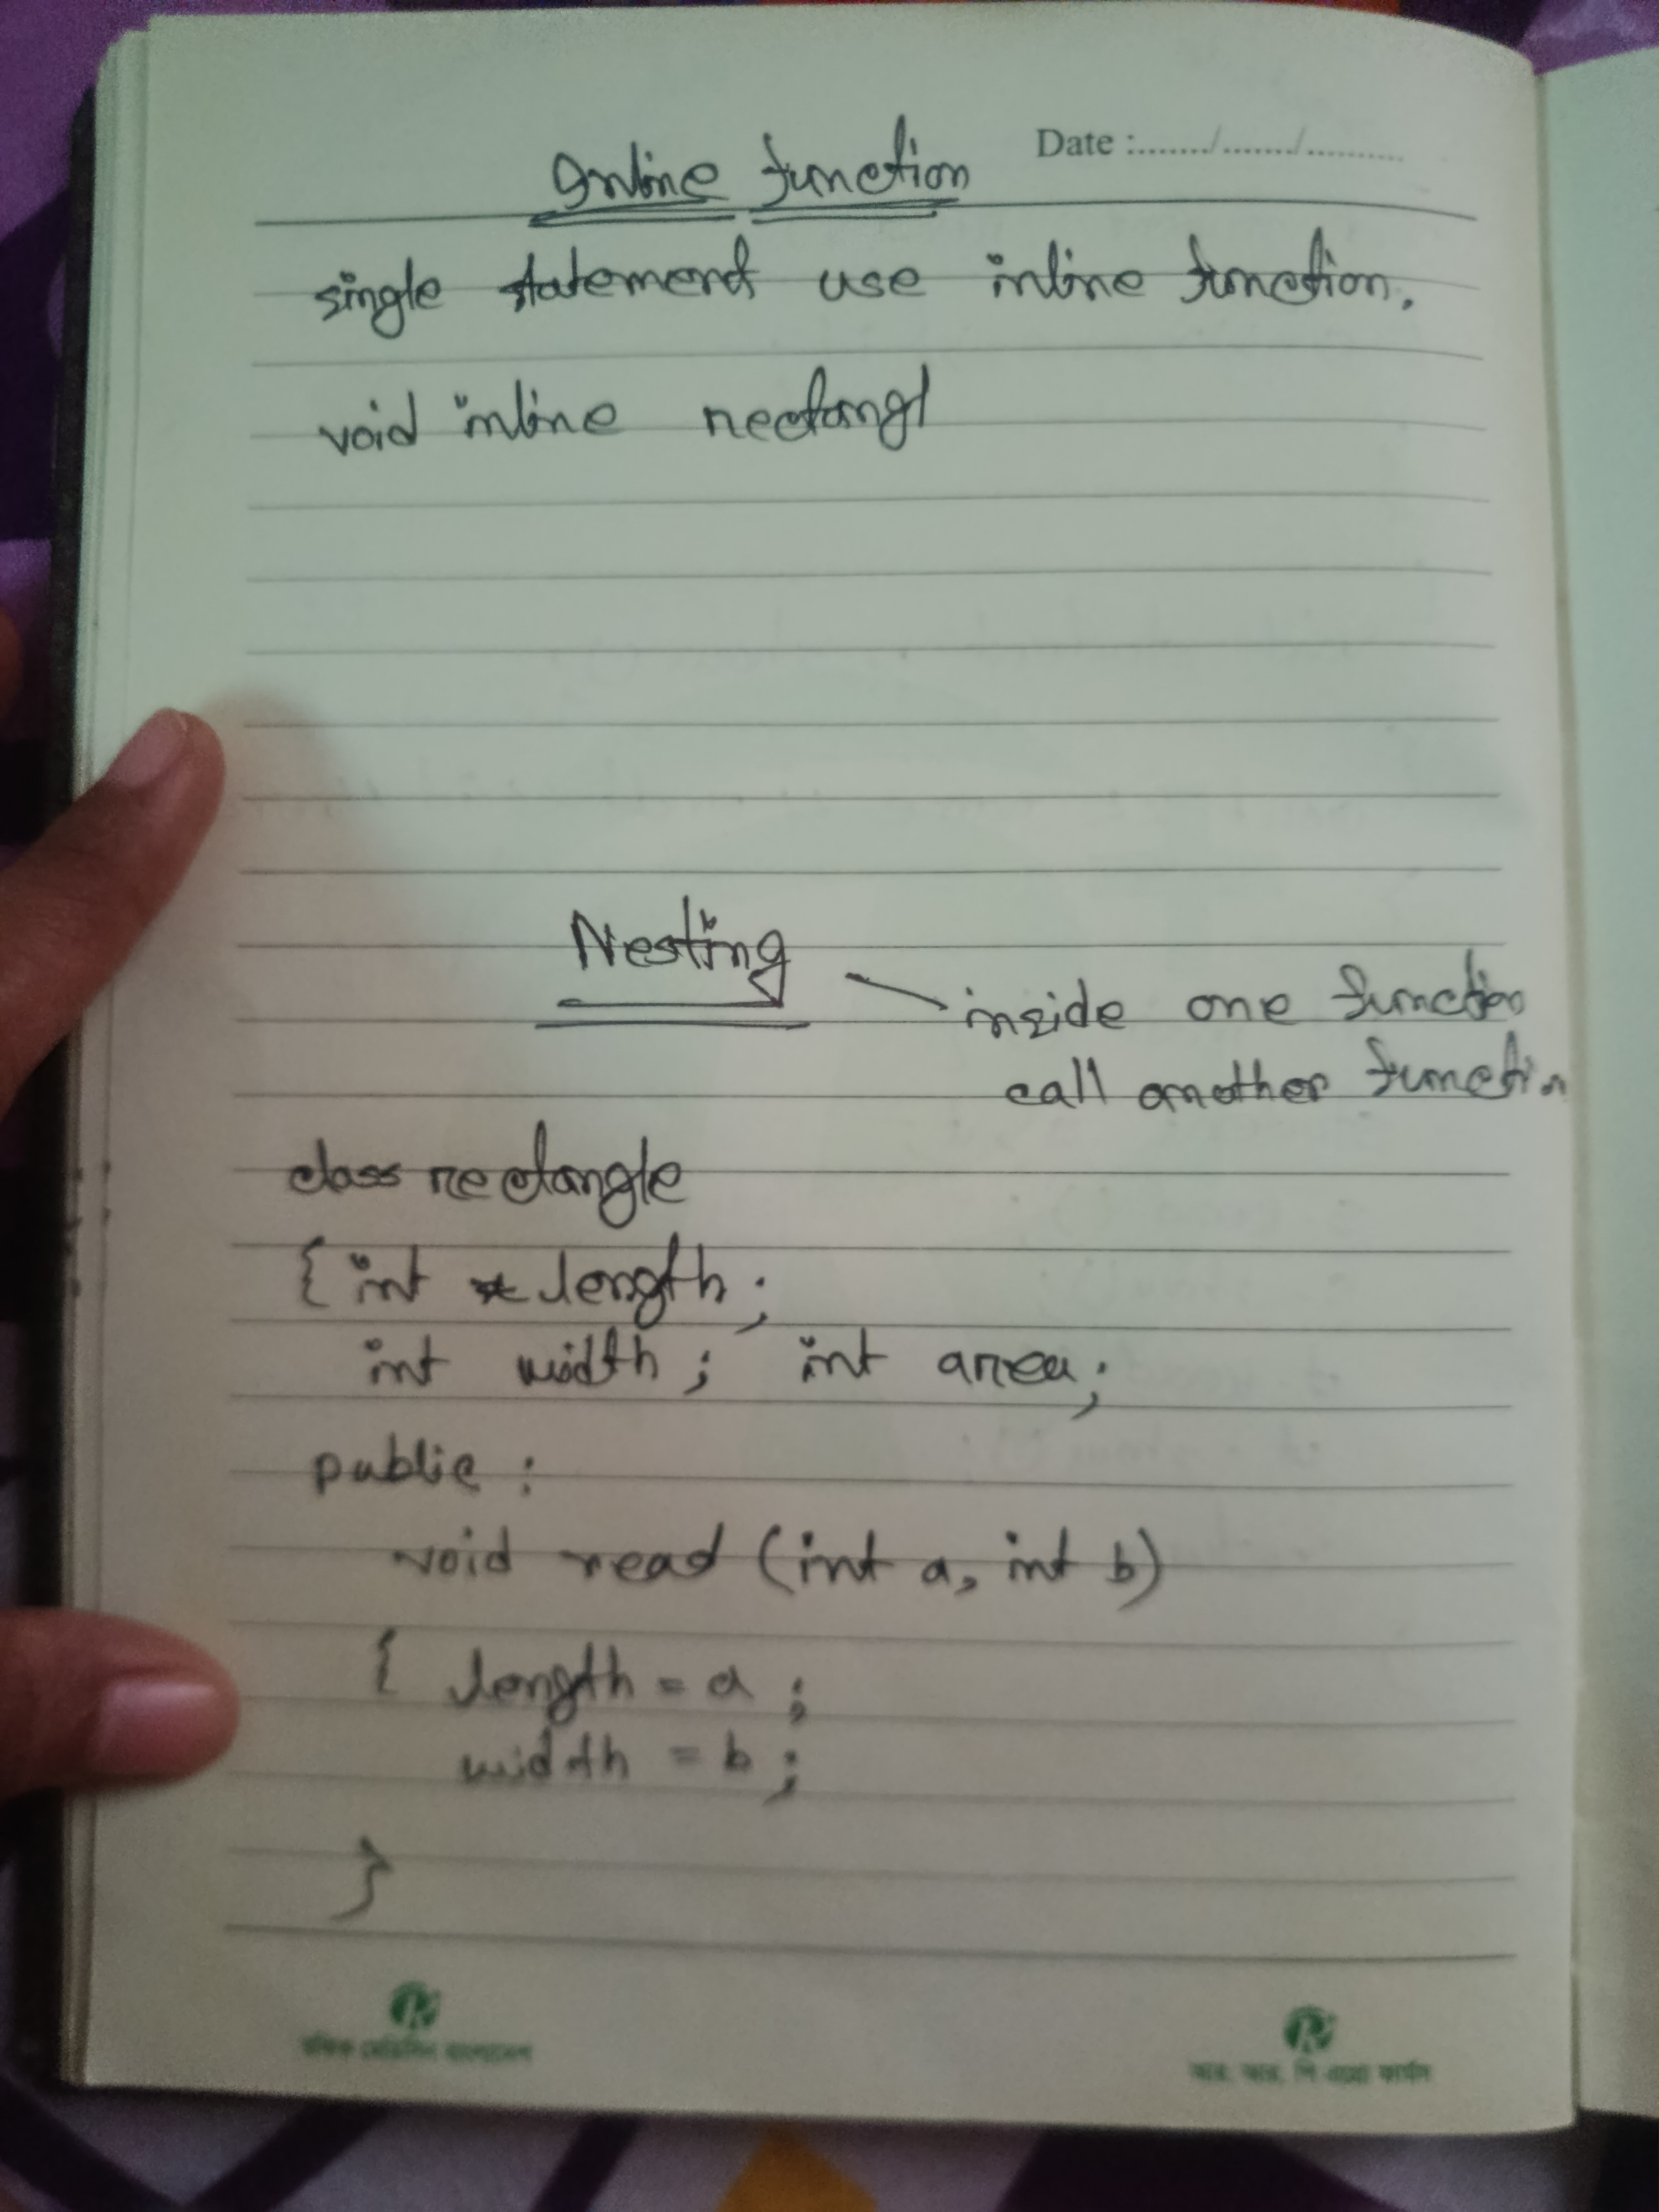 Date :......./......./..........
Inline function
single statement use inline function.
void inline rectangl
Nesting
inside one function
call another function
class rectangle
{ int length ;
int width ; int area ;
public :
void read (int a, int b)
{ length = a ;
width = b ;
}
আর. আর. পি এগ্রো ফার্মস